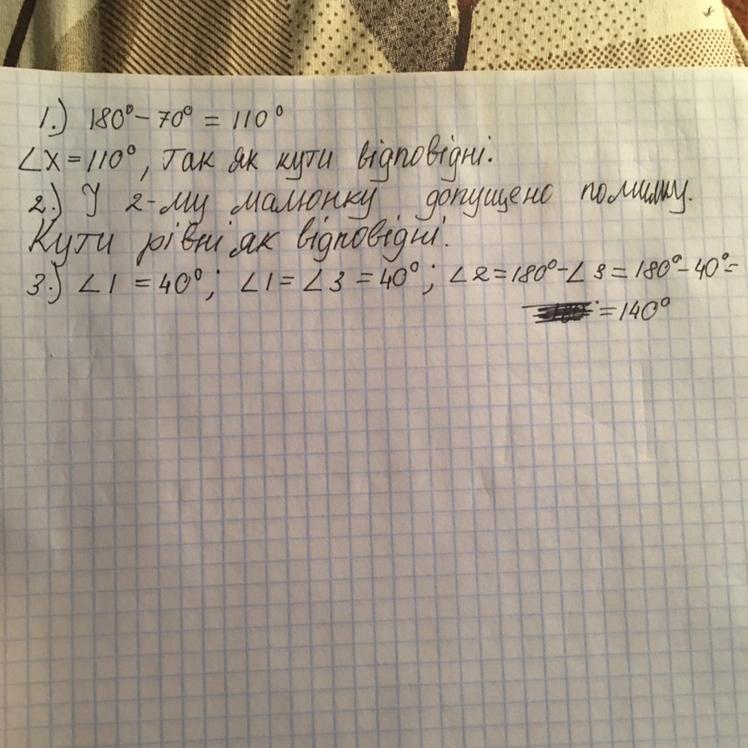 1.) 180° - 70° = 110°
∠X = 110°, так як кути відповідні.
2.) У 2-му малюнку допущено помилку.
Кути рівні як відповідні.
3.) ∠1 = 40°; ∠1 = ∠3 = 40°; ∠2 = 180° - ∠3 = 180° - 40° =
= 140°